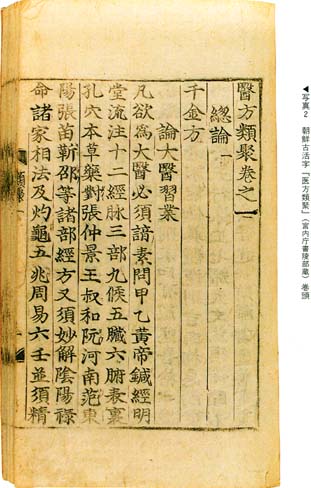 ◀写真2 朝鮮古活字『医方類聚』(宮内庁書陵部蔵)巻頭
醫方類聚卷之一
總論一
千金方
論大醫習業
凡欲爲大醫必須諳素問甲乙黃帝鍼經明
堂流注十二經脉三部九候五臟六腑表裏
孔穴本草藥對張仲景王叔和阮河南范東
陽張苗靳邵等諸部經方又須妙解陰陽祿
命諸家相法及灼龜五兆周易六壬並須精
類聚一